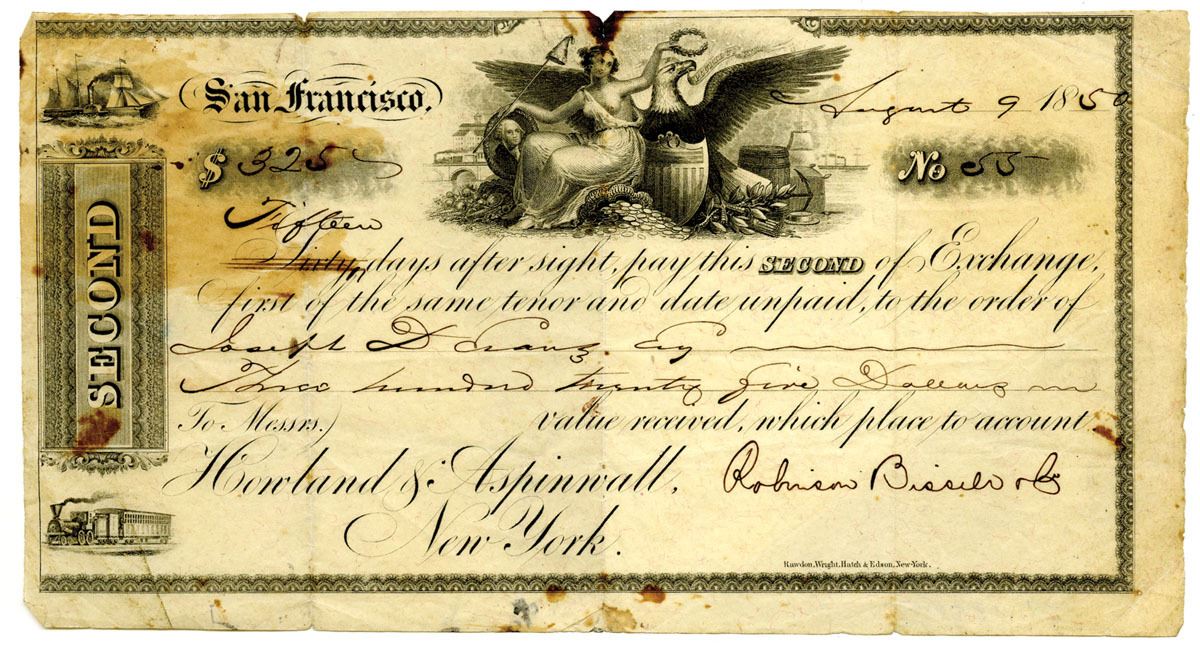 San Francisco, August 9 1850
$ 325 No 55
SECOND
Fifteen
Sixty, days after sight, pay this SECOND of Exchange,
first of the same tenor and date unpaid, to the order of
Joseph D Esq
Three hundred twenty five Dollars
To Messrs. value received, which place to account.
Howland & Aspinwall, Robinson Bissell & Co
New York.
Rawdon, Wright, Hatch & Edson, New-York.